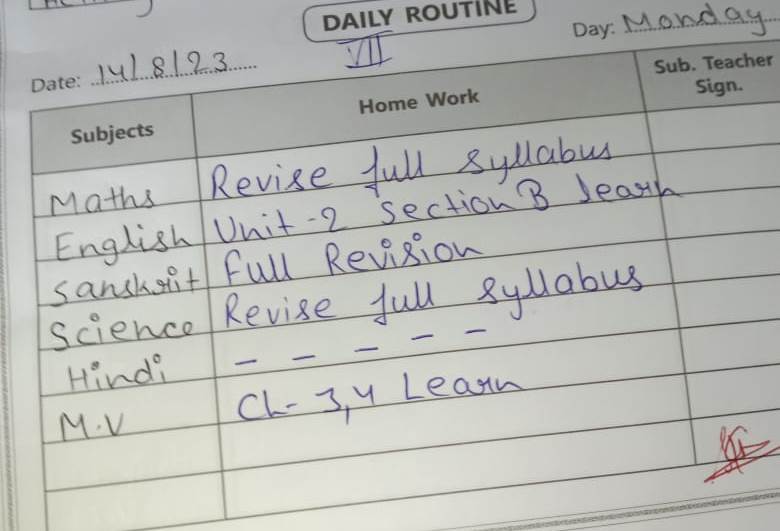 DAILY ROUTINE
VII
Date: 14/8/23 Day: Monday
Subjects Home Work Sub. Teacher Sign.
Maths Revise full syllabus
English Unit-2 Section B learn
Sanskrit Full Revision
Science Revise full syllabus
Hindi - - - - -
M.V Ch-3,4 Learn